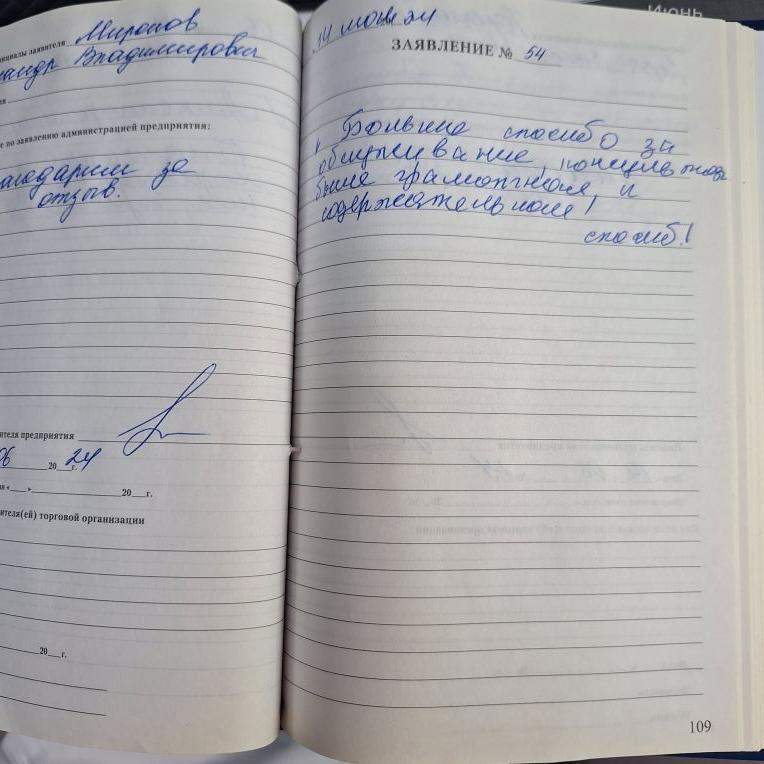 Июнь
инициалы заявителя Миронов
Владимирович
е по заявлению администрацией предприятия:
агодарим за
отзыв.
ителя предприятия
06 2024 г.
ия «___» 20___г.
ителя(ей) торговой организации
20___г.
14 24
ЗАЯВЛЕНИЕ № 54
Большие спасибо за
обслуживание,
было грамотной и
содержательной!
спасиб!
109